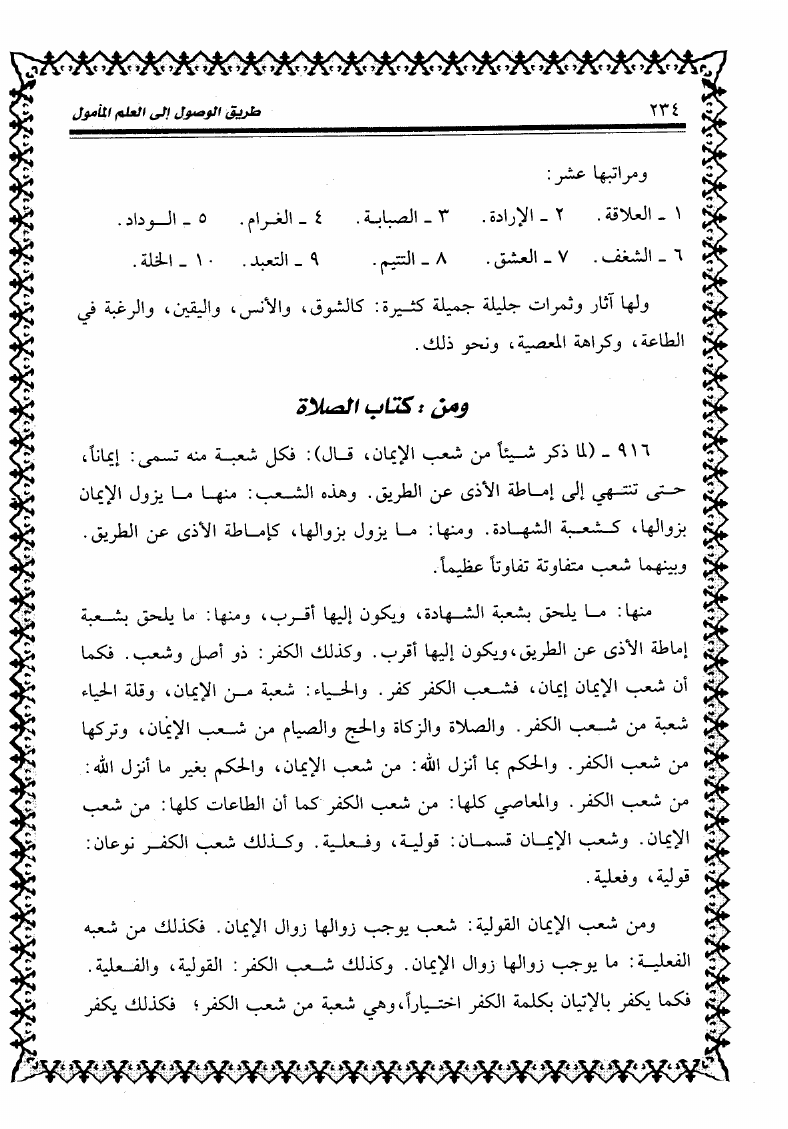 ٢٣٤ طريق الوصول إلى العلم المأمول
ومراتبها عشر:
١ ـ العلاقة. ٢ ـ الإرادة. ٣ ـ الصبابة. ٤ ـ الغرام. ٥ ـ الوداد.
٦ ـ الشغف. ٧ ـ العشق. ٨ ـ التتيم. ٩ ـ التعبد. ١٠ ـ الخلة.
ولها آثار وثمرات جليلة جميلة كثيرة: كالشوق، والأنس، واليقين، والرغبة في
الطاعة، وكراهة المعصية، ونحو ذلك.
ومن : كتاب الصلاة
٩١٦ ـ (لما ذكر شيئاً من شعب الإيمان، قال): فكل شعبة منه تسمى: إيماناً،
حتى تنتهي إلى إماطة الأذى عن الطريق. وهذه الشعب: منها ما يزول الإيمان
بزوالها، كشعبة الشهادة. ومنها: ما يزول بزوالها، كإماطة الأذى عن الطريق.
وبينهما شعب متفاوتة تفاوتاً عظيماً.
منها: ما يلحق بشعبة الشهادة، ويكون إليها أقرب، ومنها: ما يلحق بشعبة
إماطة الأذى عن الطريق، ويكون إليها أقرب. وكذلك الكفر: ذو أصل وشعب. فكما
أن شعب الإيمان إيمان، فشعب الكفر كفر. والحياء: شعبة من الإيمان، وقلة الحياء
شعبة من شعب الكفر. والصلاة والزكاة والحج والصيام من شعب الإيمان، وتركها
من شعب الكفر. والحكم بما أنزل الله: من شعب الإيمان، والحكم بغير ما أنزل الله:
من شعب الكفر. والمعاصي كلها: من شعب الكفر كما أن الطاعات كلها: من شعب
الإيمان. وشعب الإيمان قسمان: قولية، وفعلية. وكذلك شعب الكفر نوعان:
قولية، وفعلية.
ومن شعب الإيمان القولية: شعب يوجب زوالها زوال الإيمان. فكذلك من شعبه
الفعلية: ما يوجب زوالها زوال الإيمان. وكذلك شعب الكفر: القولية، والفعلية.
فكما يكفر بالإتيان بكلمة الكفر اختياراً، وهي شعبة من شعب الكفر؛ فكذلك يكفر